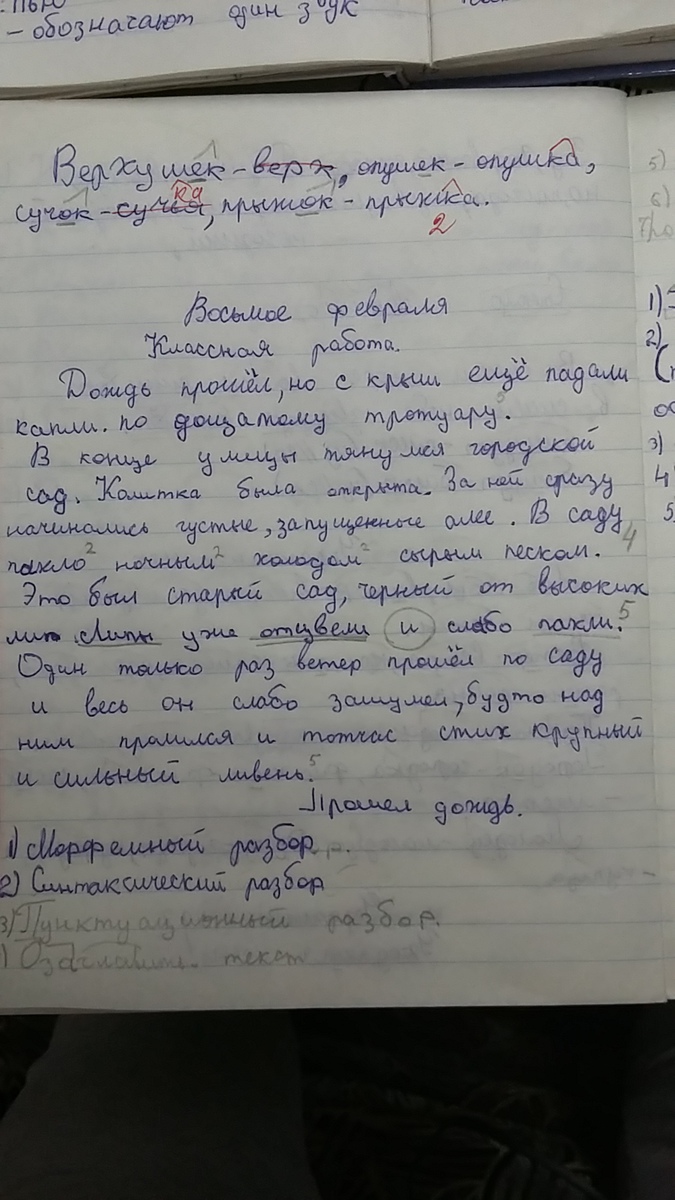 – обозначают один звук
Верхушек - верх, опушек - опушка,
ка
сучок - сучья, прыжок - прыжка.
2
5)
6)
Восьмое февраля
Классная работа.
1)
2)
Дождь прошёл, но с крыш ещё падали
капли. по дощатому тротуару.5
В конце улицы тянулся городской
3)
сад. Калитка была открыта. За ней сразу
4
начинались густые, запущенные алее. В саду
5
пахло2 ночным2 холодом2 сырым песком.4
Это был старый сад, черный от высоких
лип Липы уже отцвели и слабо пахли.5
Один только раз ветер прошёл по саду
и весь он слабо зашумел, будто над
ним пролился и тотчас стих крупный
и сильный ливень.5
Прошел дождь.
1) Морфемный разбор.
2) Синтаксический разбор
3) Пунктуационный разбор.
) Озаглавить текст